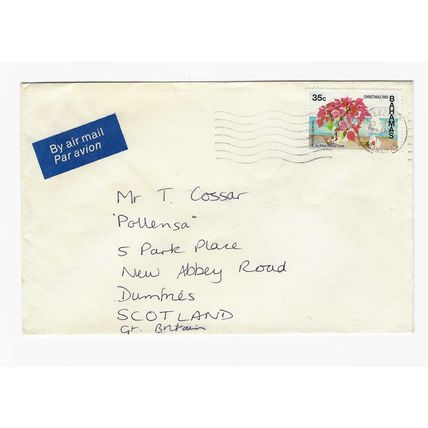 By air mail
Par avion
35c
CHRISTMAS
BAHAMAS
Mr T. Cossar
"Pollensa"
5 Park Place
New Abbey Road
Dumfries
SCOTLAND
Gt. Britain